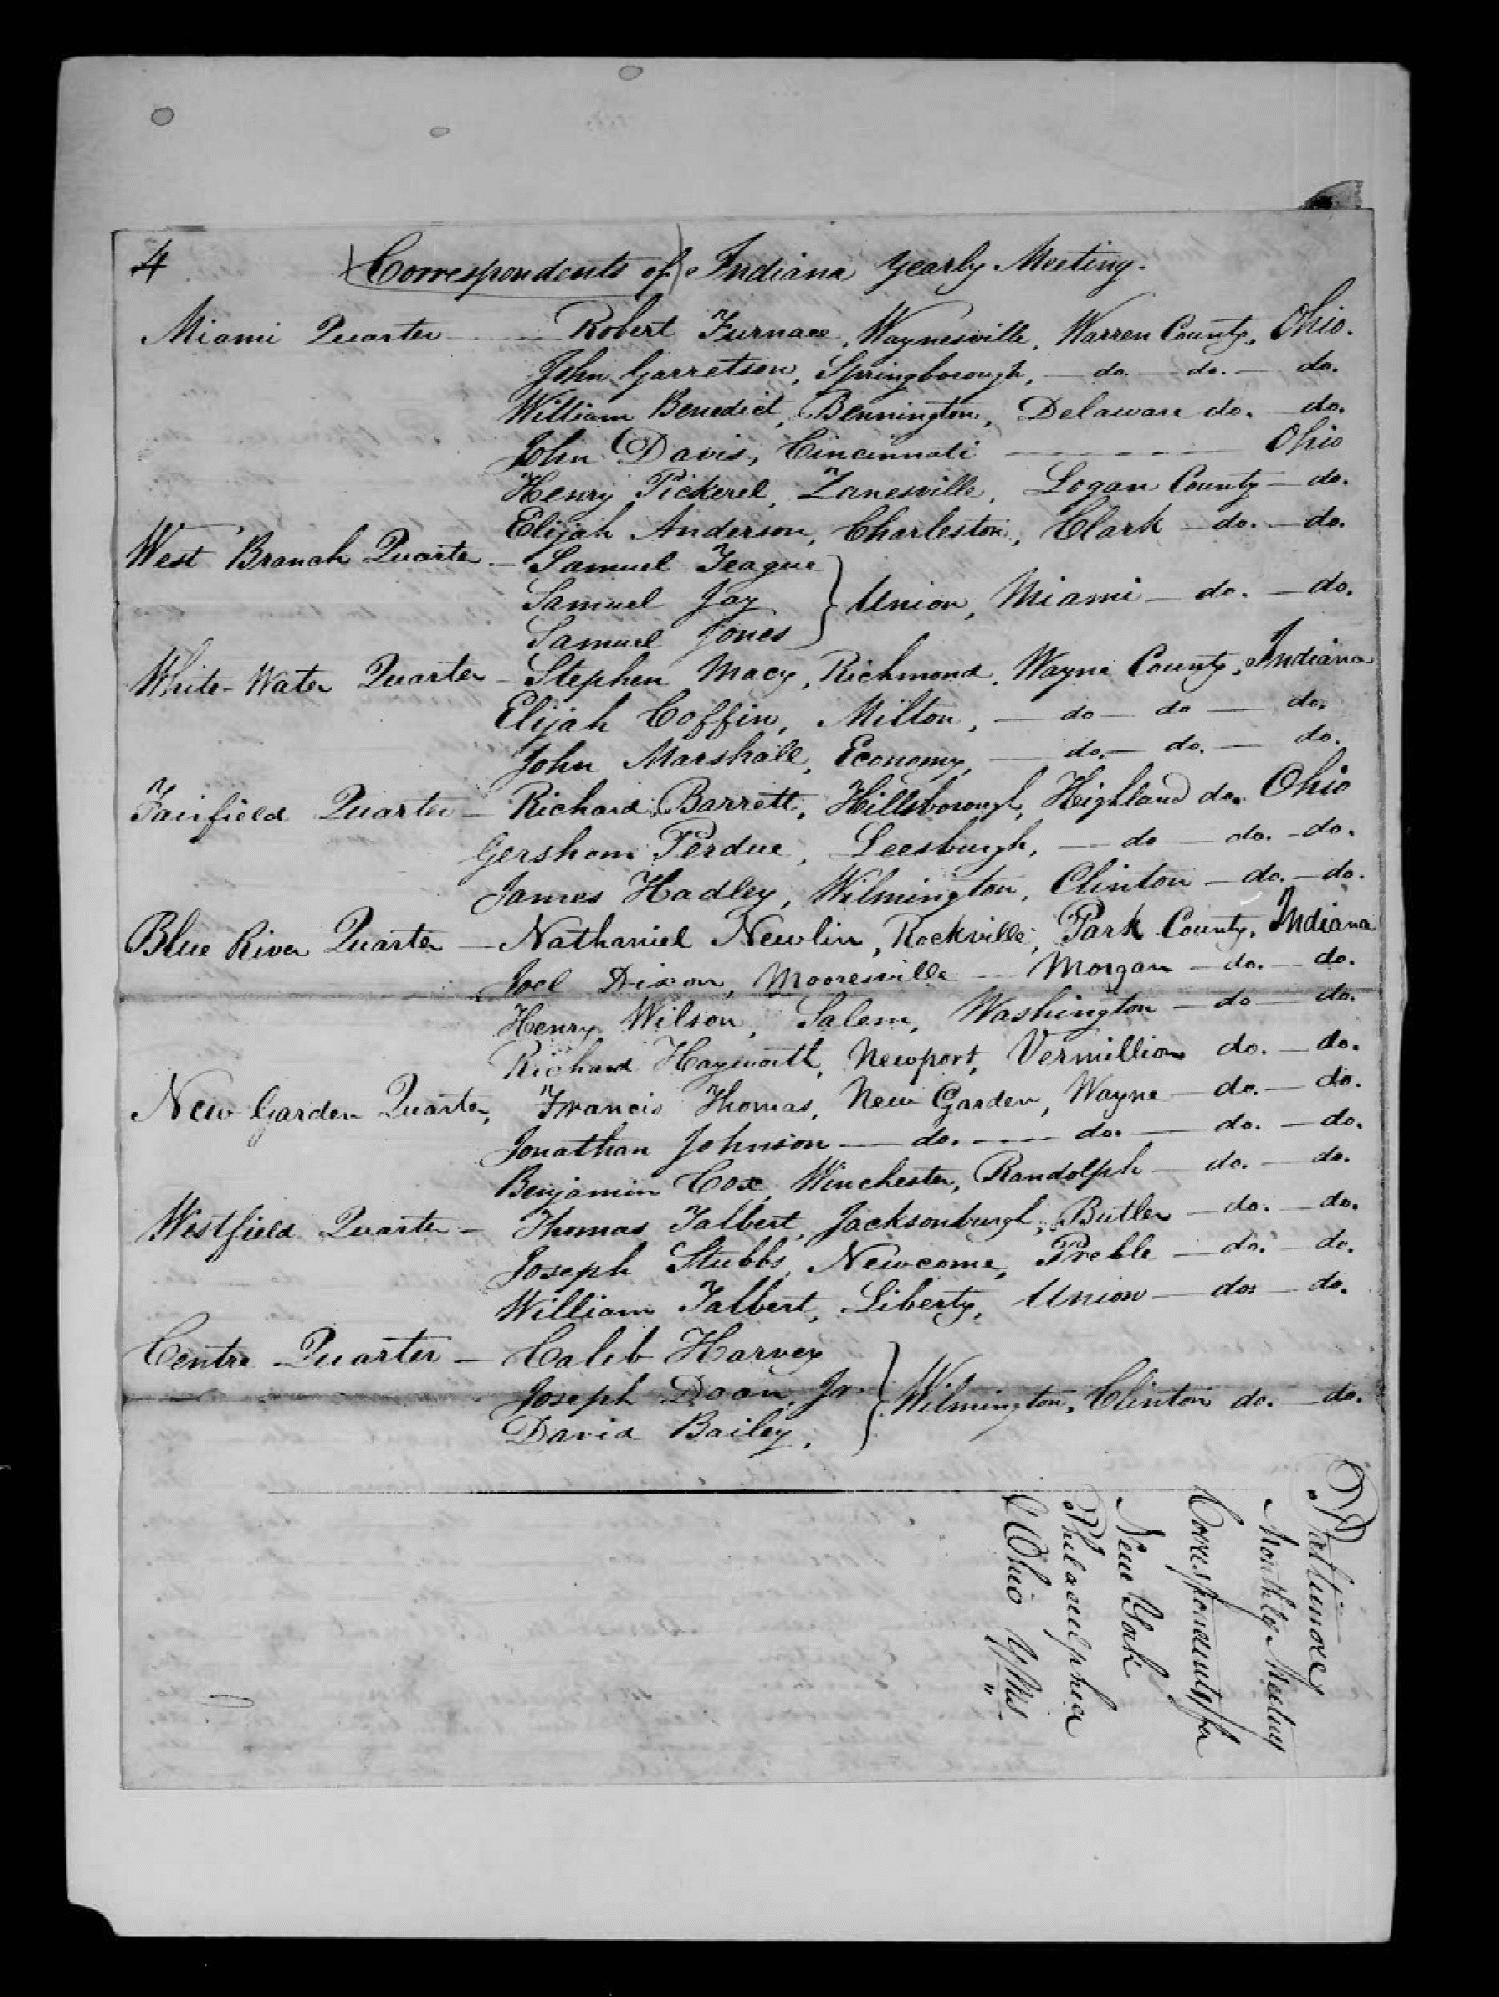 4 Correspondents of Indiana Yearly Meeting.
Miami Quarter — Robert Furnace, Waynesville, Warren County, Ohio.
John Garretson, Springborough, — do. — do. — do.
William Benedict, Bennington, Delaware do. — do.
John Davis, Cincinnati — Ohio
Henry Pickerel, Zanesville, Logan County — do.
Elijah Anderson, Charleston, Clark — do. — do.
West Branch Quarter — Samuel Teague
Samuel Jay } Union, Miami — do. — do.
Samuel Jones
White-Water Quarter — Stephen Macy, Richmond, Wayne County, Indiana
Elijah Coffin, Milton, — do — do — do.
John Marshall, Economy, — do. — do. — do.
Fairfield Quarter — Richard Barrett, Hillsborough, Highland do. Ohio
Gershom Perdue, Leesburgh, — do — do. — do.
James Hadley, Wilmington, Clinton — do. — do.
Blue River Quarter — Nathaniel Newlin, Rockville, Park County, Indiana
Joel Dixon, Mooresville — Morgan — do. — do.
Henry Wilson, Salem, Washington — do — do.
Richard Hayworth, Newport, Vermillion do. — do.
New Garden Quarter, Francis Thomas, New Garden, Wayne — do. — do.
Jonathan Johnson — do. — do. — do. — do.
Benjamin Cox, Winchester, Randolph — do. — do.
Westfield Quarter — Thomas Talbert, Jacksonburgh, Butler — do. — do.
Joseph Stubbs, Newcome, Preble — do. — do.
William Talbert, Liberty, Union — do. — do.
Centre Quarter — Caleb Harvey
Joseph Doan, Jr. } Wilmington, Clinton do. — do.
David Bailey,
Baltimore
Monthly Meeting
Correspondents for
New York
Philadelphia
& Ohio YMs